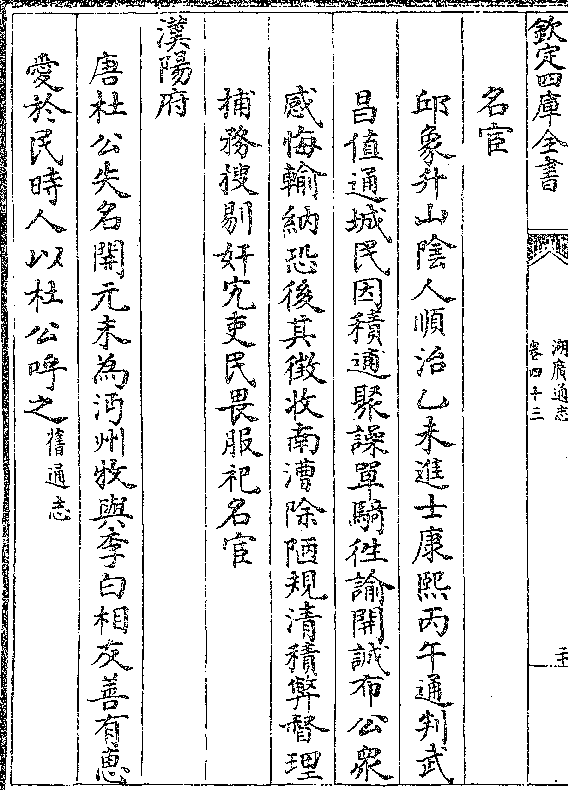 欽定四庫全書
湖廣通志
卷四十三
名宦
邱象升山陰人順治乙未進士康熙丙午通判武
昌值通城民因積逋聚譟單騎徃諭開誠布公衆
感悔輸納恐後其徵收南漕除陋規清積弊督理
捕務搜剔奸宄吏民畏服祀名宦
漢陽府
唐杜公失名開元末為沔州牧與李白相友善有惠
愛於民時人以杜公呼之舊通志